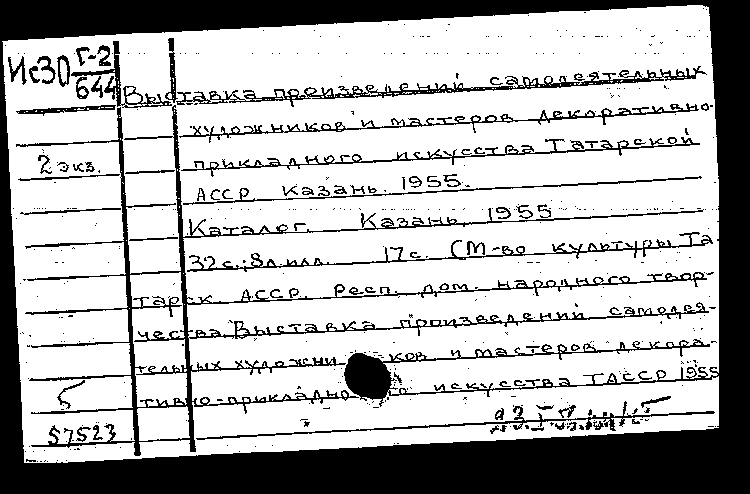 Ис30 Г-2
644
Выставка произведений самодеятельных
художников и мастеров декоративно-
2 экз.
прикладного искусства Татарской
АССР. Казань. 1955.
Каталог. Казань, 1955
32 с.; 8 л. илл. 17 с. (М-во культуры Та-
тарск. АССР. Респ. дом. народного твор-
чества. Выставка произведений самодея-
тельных художников и мастеров декора-
тивно-прикладного искусства ТАССР 1955
5
57523